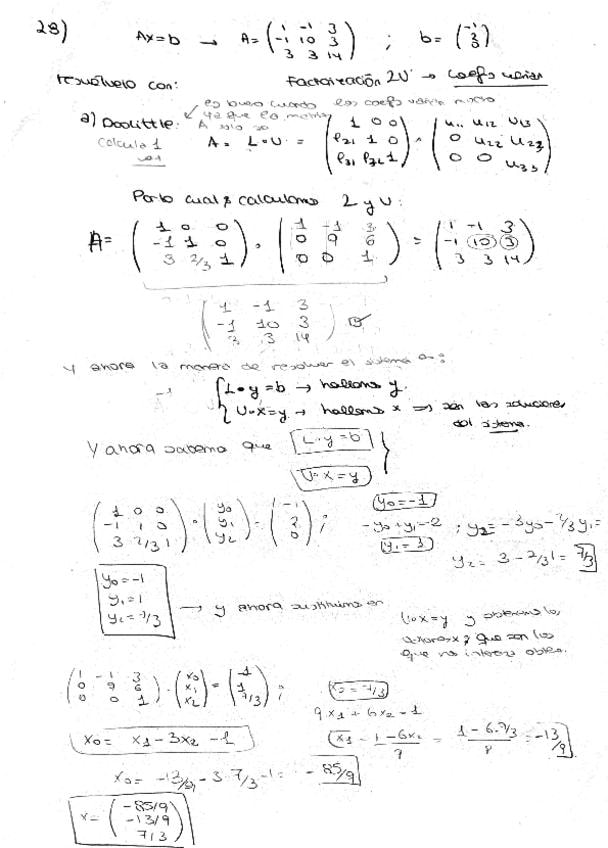 28) Ax=b → A= (1 -1 3; -1 10 3; 3 3 14) ; b= (-1; 2; 0)
resuélvelo con: Factorización LU →
es bueno cuando los coefs varían mucho
a) Doolittle: ya que la matriz
A solo se
calcula 1 A = L•U = (1 0 0; l21 1 0; l31 l32 1) • (u11 u12 u13; 0 u22 u23; 0 0 u33)
Por lo cual calculamos L y U:
A= (1 0 0; -1 1 0; 3 2/3 1) • (1 -1 3; 0 9 6; 0 0 1) = (1 -1 3; -1 10 3; 3 3 14)
(1 -1 3; -1 10 3; 3 3 14)
Y ahora la manera de resolver el sistema es:
→ { L•y=b → hallamos y.
U•x=y → hallamos x ⇒ son las soluciones
del sistema.
Y ahora sabemos que L•y=b }
U•x=y
(1 0 0; -1 1 0; 3 2/3 1) • (y0; y1; y2) = (-1; 2; 0) ; y0=-1
-y0+y1=2 ; y2=-3y0-2/3y1=
y1=1
y2= 3-2/3 1= 7/3
y0=-1
y1=1
y2=7/3 → y ahora sustituimos en
U•x=y y obtenemos los
que son los
que nos interesa obten.
(1 -1 3; 0 9 6; 0 0 1) • (x0; x1; x2) = (-1; 1; 7/3) ; x2=7/3
9x1+6x2=1
x0= x1-3x2-1
x1= 1-6x2/9 = 1-6•7/3/9 = -13/9
x0= -13/9-3•7/3-1= -85/9
x= (-85/9; -13/9; 7/3)